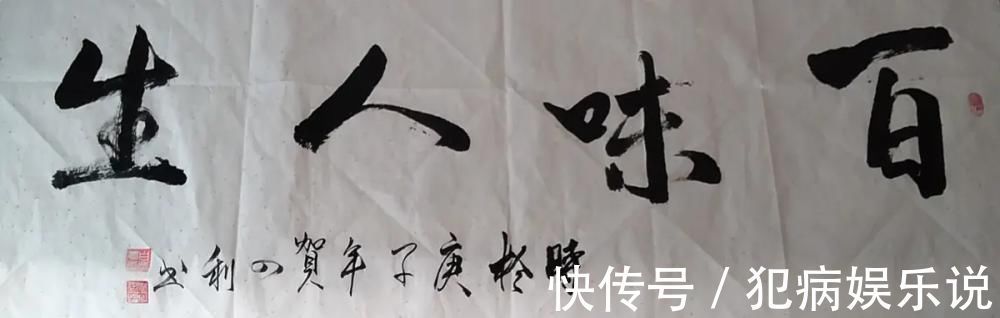 百味人生
時於庚子年賀四利书
快传号 / 犯病娱乐说